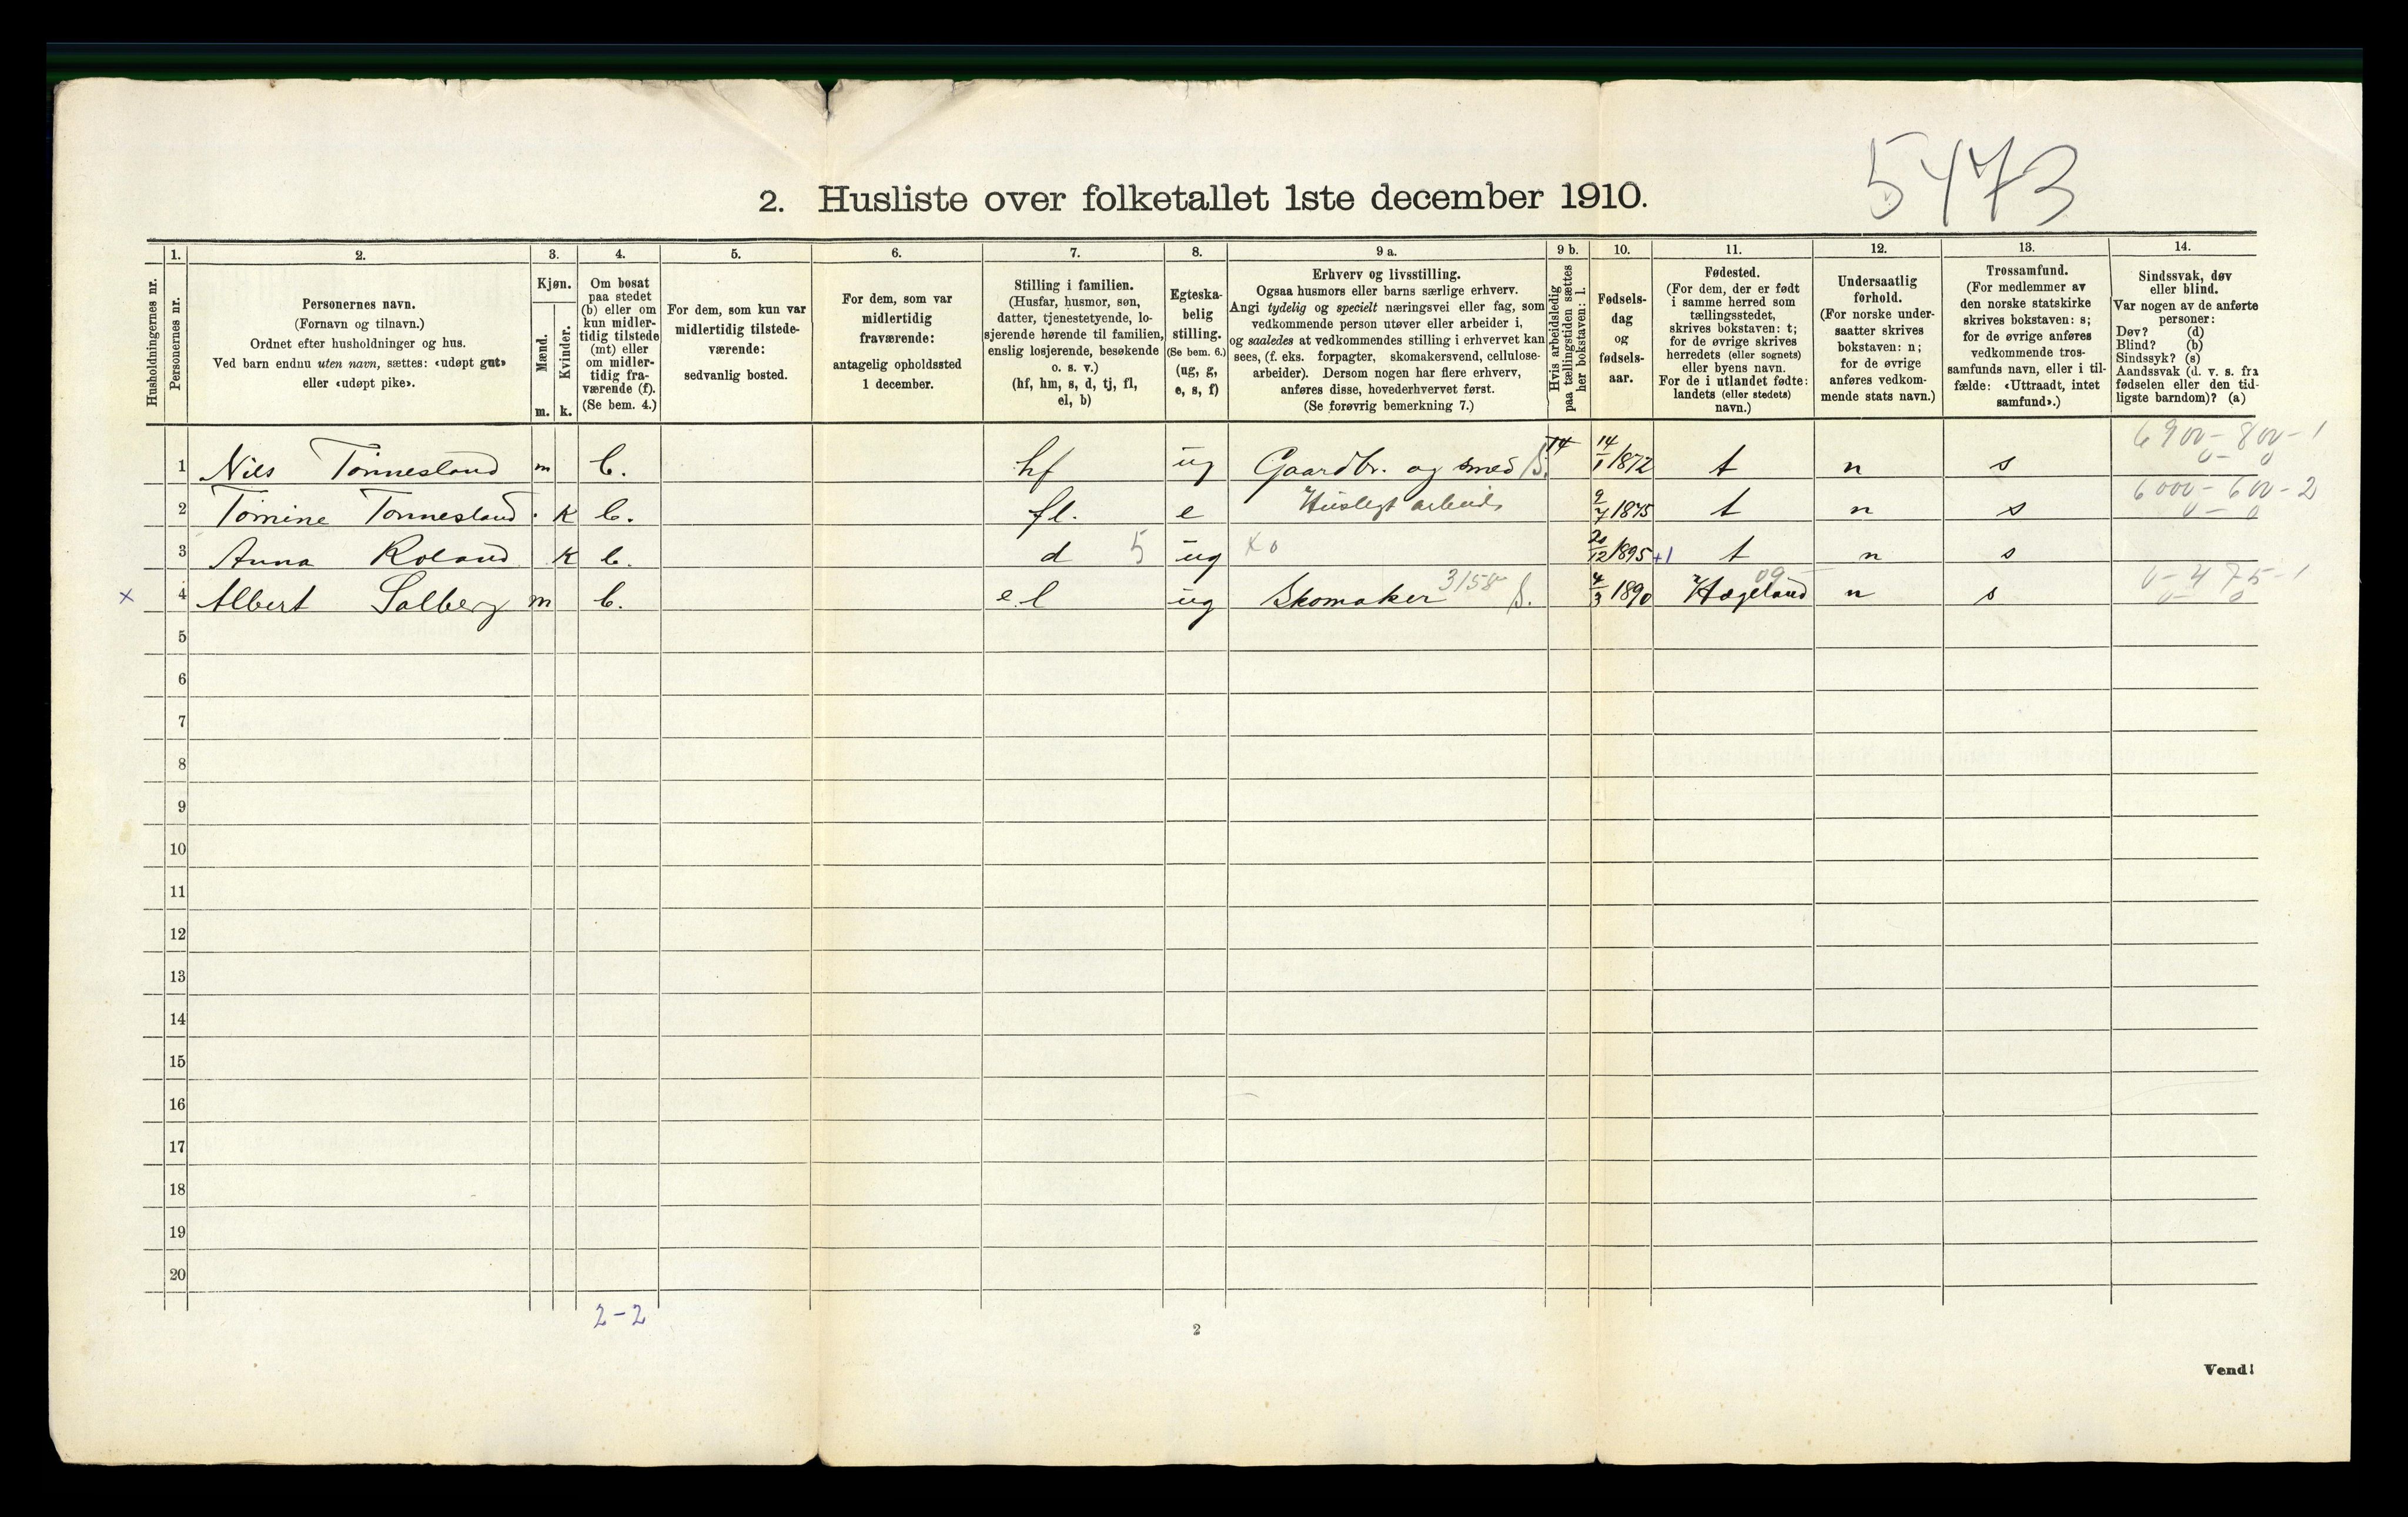 5473
2. Husliste over folketallet 1ste december 1910.
Husholdningernes nr.
1.
Personernes nr.
2.
Personernes navn.
(Fornavn og tilnavn.)
Ordnet efter husholdninger og hus.
Ved barn endnu uten navn, sættes: «udøpt gut»
eller «udøpt pike».
3.
Kjøn.
Mænd.
m.
Kvinder.
k.
4.
Om bosat
paa stedet
(b) eller om
kun midler-
tidig tilstede
(mt) eller
om midler-
tidig fra-
værende (f).
(Se bem. 4.)
5.
For dem, som kun var
midlertidig tilstede-
værende:
sedvanlig bosted.
6.
For dem, som var
midlertidig
fraværende:
antagelig opholdssted
1 december.
7.
Stilling i familien.
(Husfar, husmor, søn,
datter, tjenestetyende, lo-
sjerende hørende til familien,
enslig losjerende, besøkende
o. s. v.)
(hf, hm, s, d, tj, fl,
el, b)
8.
Egteska-
belig
stilling.
(Se bem. 6.)
(ug, g,
e, s, f)
9 a.
Erhverv og livsstilling.
Ogsaa husmors eller barns særlige erhverv.
Angi tydelig og specielt næringsvei eller fag, som
vedkommende person utøver eller arbeider i,
og saaledes at vedkommendes stilling i erhvervet kan
sees, (f. eks. forpagter, skomakersvend, cellulose-
arbeider). Dersom nogen har flere erhverv,
anføres disse, hovederhvervet først.
(Se forøvrig bemerkning 7.)
9 b.
Hvis arbeidsledig
paa tællingstiden sættes
her bokstaven: l.
10.
Fødsels-
dag
og
fødsels-
aar.
11.
Fødested.
(For dem, der er født
i samme herred som
tællingsstedet,
skrives bokstaven: t;
for de øvrige skrives
herredets (eller sognets)
eller byens navn.
For de i utlandet fødte:
landets (eller stedets)
navn.)
12.
Undersaatlig
forhold.
(For norske under-
saatter skrives
bokstaven: n;
for de øvrige
anføres vedkom-
mende stats navn.)
13.
Trossamfund.
(For medlemmer av
den norske statskirke
skrives bokstaven: s;
for de øvrige anføres
vedkommende tros-
samfunds navn, eller i til-
fælde: «Uttraadt, intet
samfund».)
14.
Sindssvak, døv
eller blind.
Var nogen av de anførte
personer:
Døv? (d)
Blind? (b)
Sindssyk? (s)
Aandssvak (d. v. s. fra
fødselen eller den tid-
ligste barndom)? (a)
1 Nils Tønnesland m b. hf ug Gaardbr. og smed S. 14 14/1 1872 t n s 6900-800-1
0-0
2 Tomine Tonnesland k b. fl. e Husligt arbeide 9/7 1875 t n s 6000-600-2
0-0
3 Anna Roland k b. d 5 ug xo 20/12 1895 +1 t n s
x 4 Albert Solberg m b. el ug Skomaker 3158 S. 4/3 1890 Hægeland 09 n s 0-475-1
0-0
5
6
7
8
9
10
11
12
13
14
15
16
17
18
19
20
2-2
2
Vend!